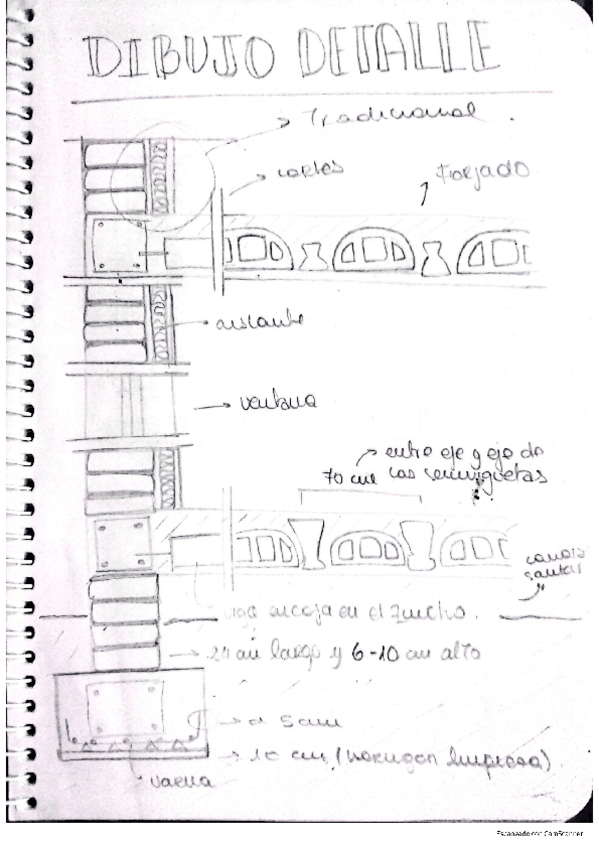 DIBUJO DETALLE
Tradicional.
cortes
Forjado
aislante
ventana
entre eje y eje de
70 cm las semiviguetas
encaja en el zuncho.
24 cm largo y 6-10 cm alto
a 5cm
10 cm (hormigon limpieza)
Escaneado con CamScanner